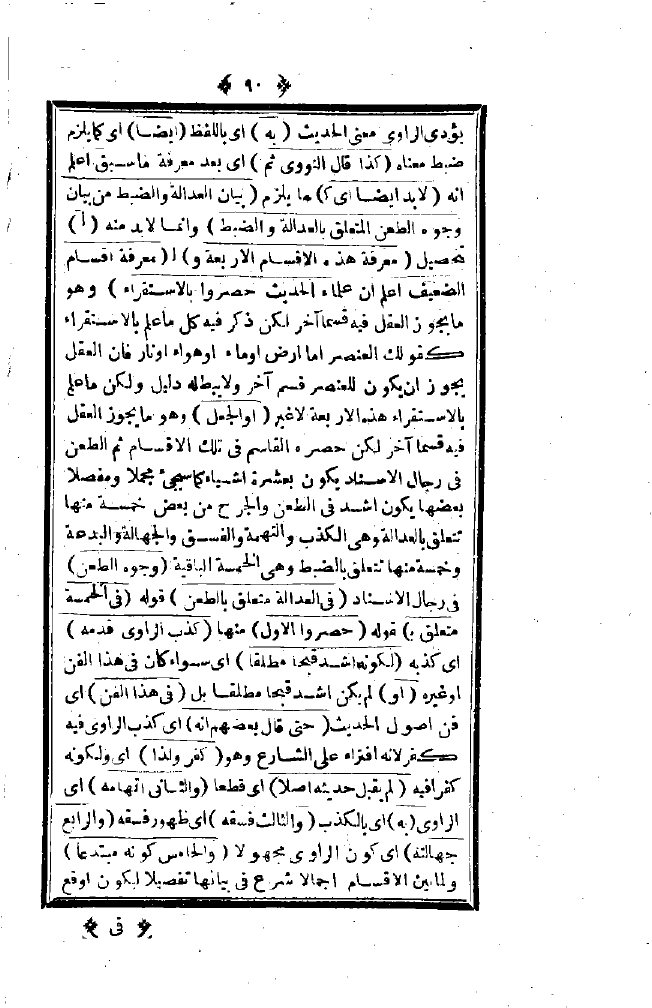 ٩٠
يؤدى الراوى معنى الحديث ( به ) اى باللفظ ( ايضا ) اى كما يلزم
ضبط معناه ( كذا قال النووى ثم ) اى بعد معرفة ماسبق اعلم
انه ( لابد ايضا اى كما يلزم ( بيان العدالة والضبط من بيان
وجوه الطعن المتعلق بالعدالة والضبط ) وانما لابد منه ( ا )
تحصيل ( معرفة هذه الاقسام الاربعة و ) ا ( معرفة اقسام
الضعيف اعلم ان علماء الحديث حصروا بالاستقراء ) وهو
مايجوز العقل فيه قسما آخر لكن ذكر فيه كل ماعلم بالاستقراء
كقولك العنصر اما ارض اوماء اوهواء اونار فان العقل
يجوز ان يكون للعنصر قسم آخر ولايبطله دليل ولكن ماعلم
بالاستقراء هذه الاربعة لاغير ( اوالجعل ) وهو مايجوز العقل
فيه قسما آخر لكن حصره القاسم فى تلك الاقسام ثم الطعن
فى رجال الاسناد يكون بعشرة اشياء كماسيجئ مجملا ومفصلا
بعضها يكون اشد فى الطعن والجرح من بعض خمسة منها
تتعلق بالعدالة وهى الكذب والتهمة والفسق والجهالة والبدعة
وخمسة منها تتعلق بالضبط وهى الخمسة الباقية ( وجوه الطعن )
فى رجال الاسناد ( فى العدالة متعلق بالطعن ) قوله ( فى الخمسة
متعلق ب‍ ) قوله ( حصروا الاول ) منها ( كذب الراوى قدمه )
اى كذبه ( لكونه اشد قبحا مطلقا ) اى سواء كان فى هذا الفن
اوغيره ( او ) لم يكن اشد قبحا مطلقا بل ( فى هذا الفن ) اى
فن اصول الحديث ( حتى قال بعضهم انه ) اى كذب الراوى فيه
كفر لانه افتراء على الشارع وهو ( كفر ولذا ) اى ولكونه
كفرا فيه ( لم يقبل حديثه اصلا ) اى قطعا ( والثانى اتهامه ) اى
الراوى ( به ) اى بالكذب ( والثالث فسقه ) اى ظهور فسقه ( والرابع
جهالته ) اى كون الراوى مجهولا ( والخامس كونه مبتدعا )
ولمابين الاقسام اجمالا شرع فى بيانها تفصيلا ليكون اوقع
فى